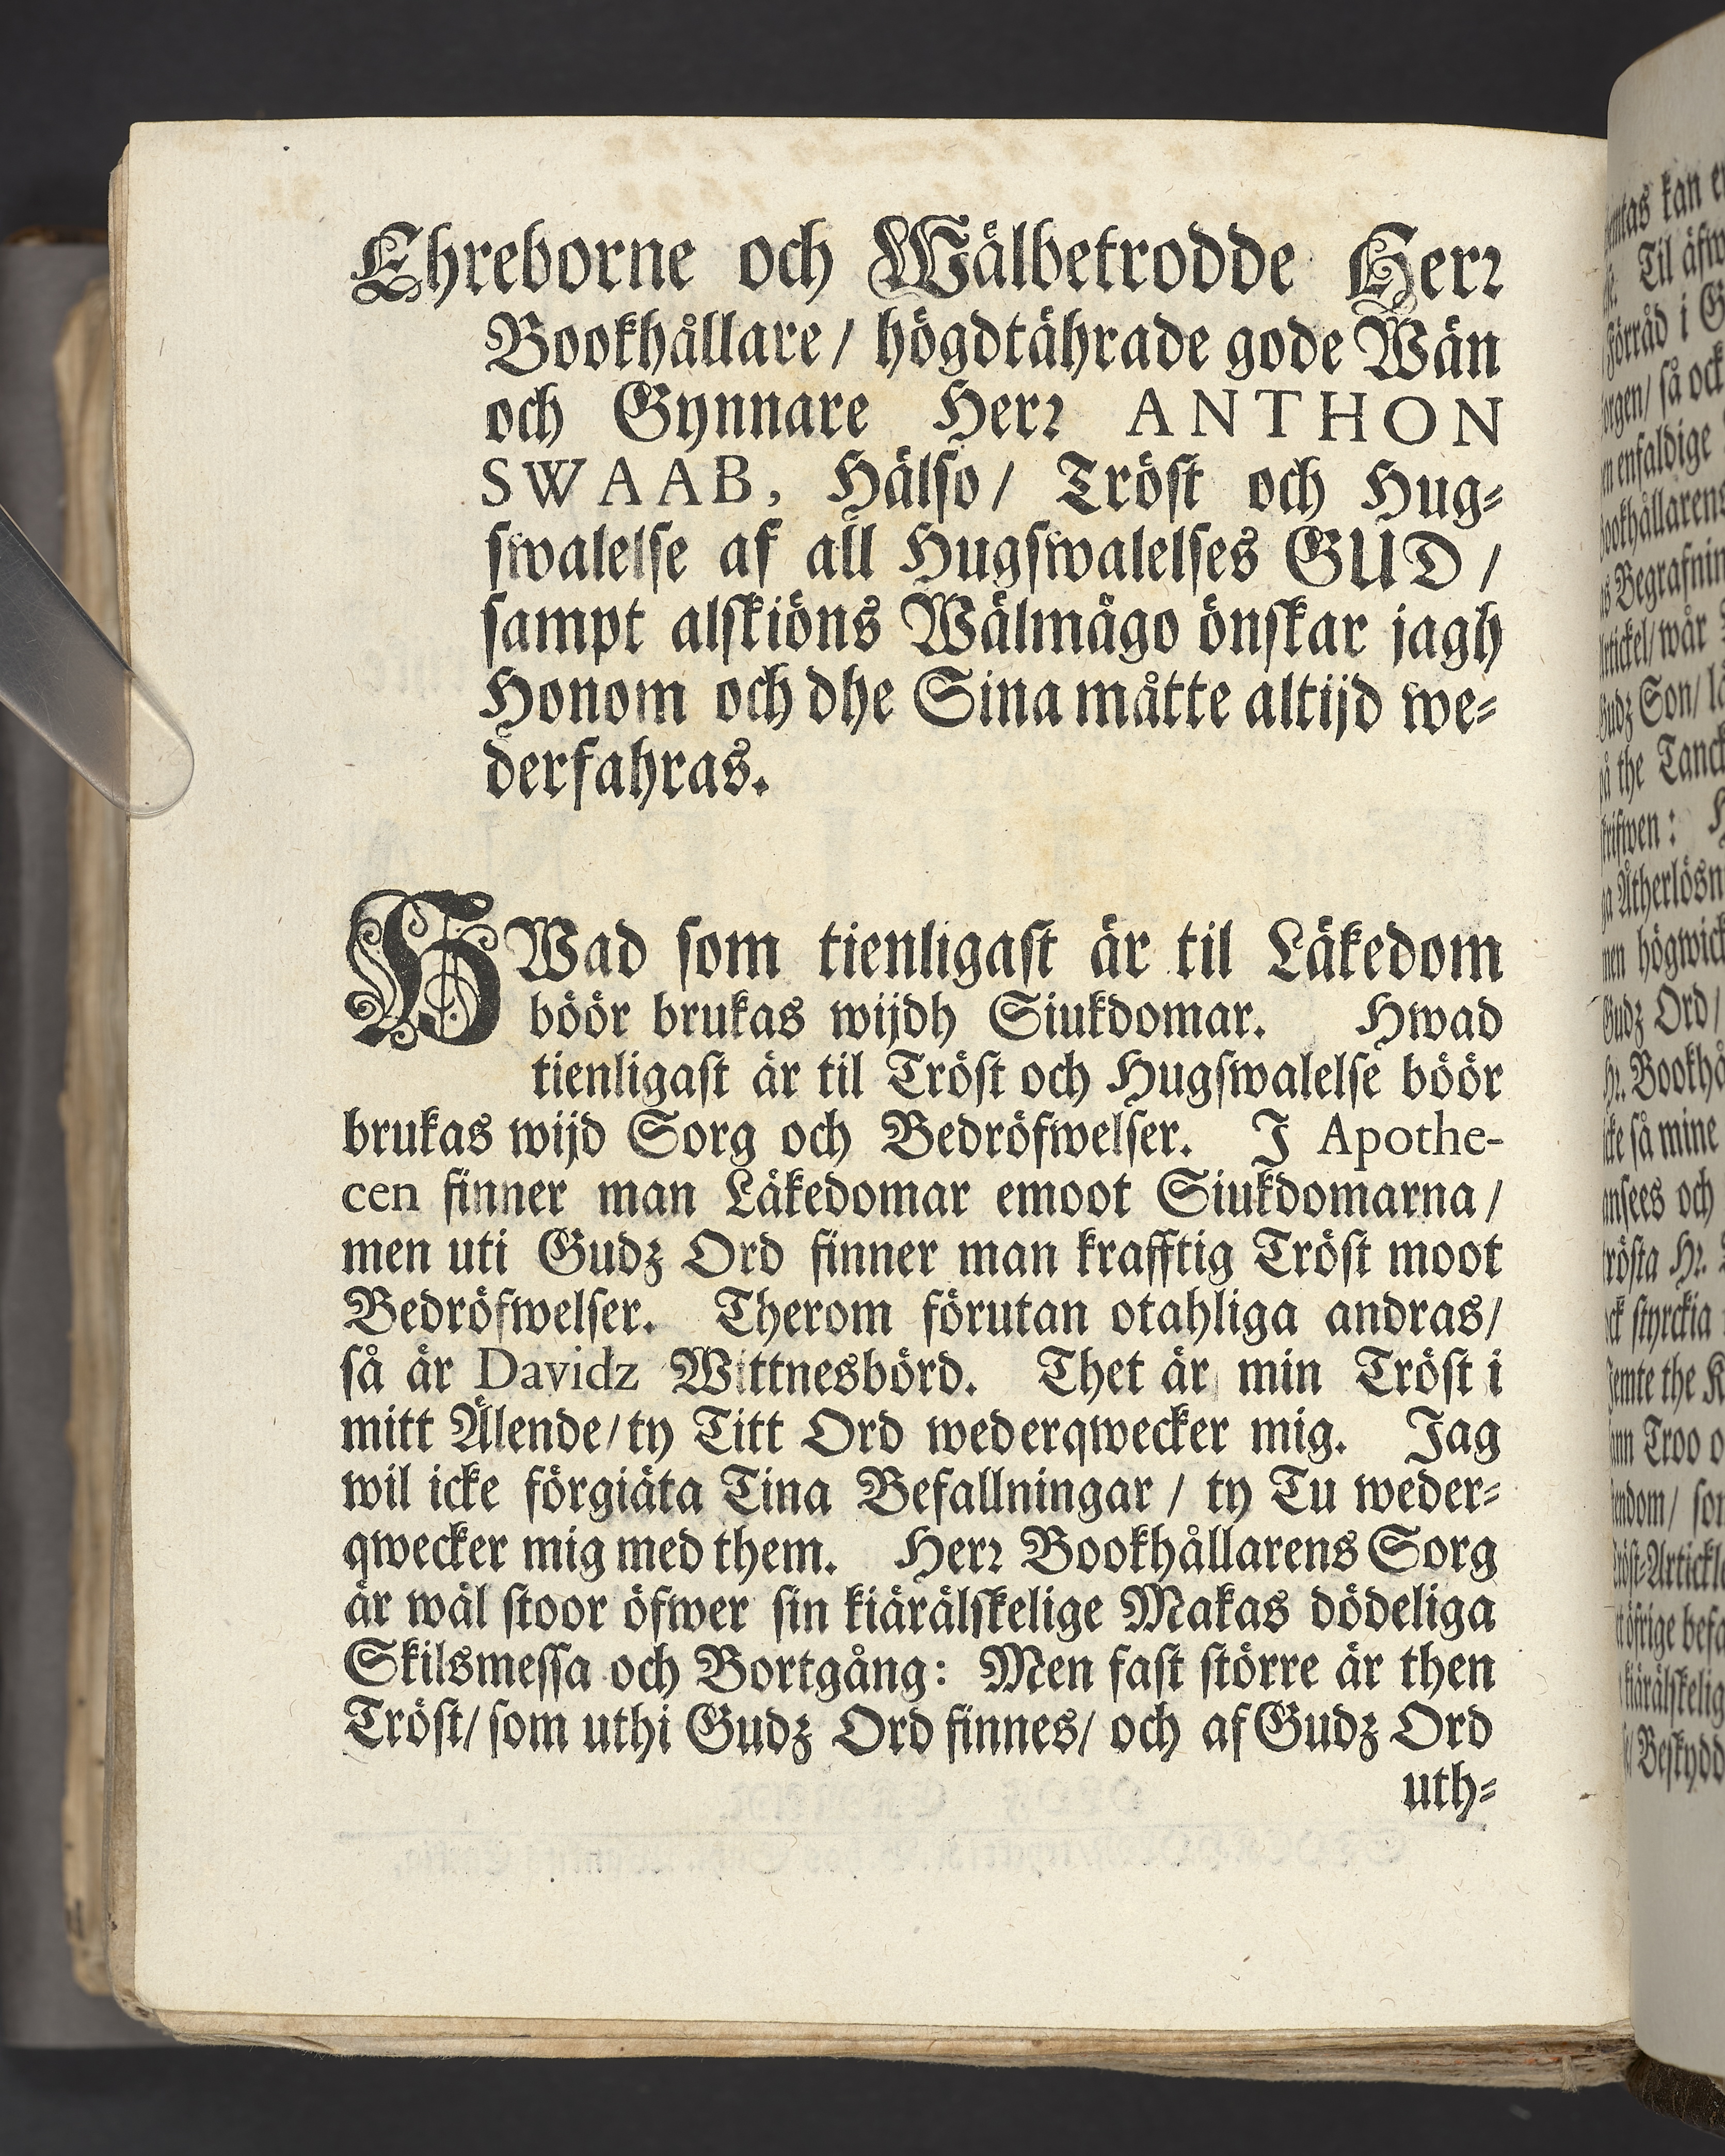 Ehreborne och Wälbetrodde Herr
Bookhållare / högdtährade gode Wän
och Gynnare Herr ANTHON
SWAAB, Hälso / Tröst och Hug-
swalelse af all Hugswalelses GUD /
sampt alskiöns Wälmågo önskar jagh
Honom och dhe Sina måtte altijd we-
derfahras.
HWad som tienligast är til Läkedom
böör brukas wijdh Siukdomar. Hwad
tienligast är til Tröst och Hugswalelse böör
brukas wijd Sorg och Bedröfwelser. I Apothe-
cen finner man Läkedomar emoot Siukdomarna /
men uti Gudz Ord finner man krafftig Tröst moot
Bedröfwelser. Therom förutan otahliga andras /
så är Davidz Wittnesbörd. Thet är min Tröst i
mitt Älende / ty Titt Ord wederqwecker mig. Jag
wil icke förgiäta Tina Befallningar / ty Tu weder-
qwecker mig med them. Herr Bookhållarens Sorg
är wäl stoor öfwer sin kiärälskelige Makas dödeliga
Skilsmessa och Bortgång: Men fast större är then
Tröst / som uthi Gudz Ord finnes / och af Gudz Ord
uth-